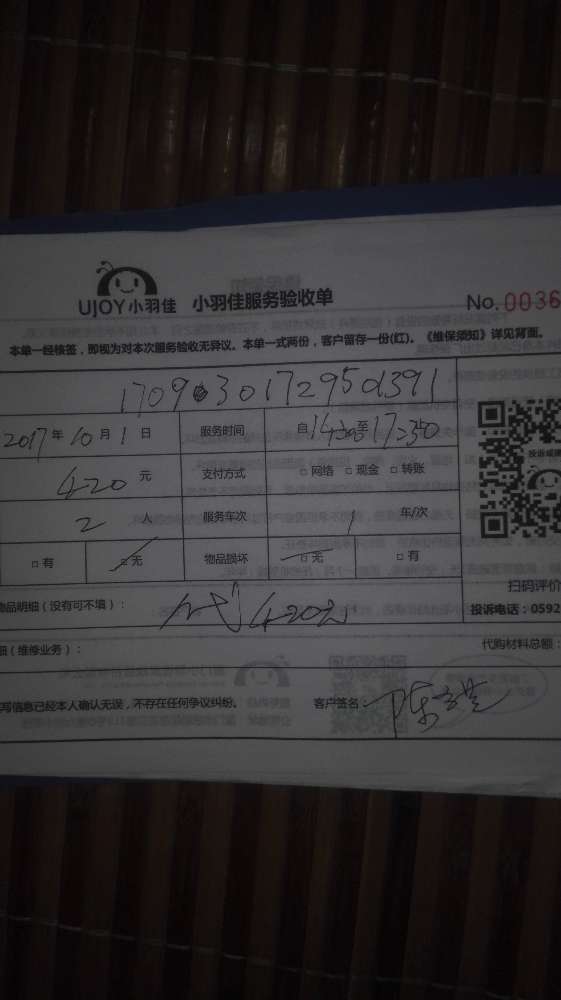 UJOY小羽佳 小羽佳服务验收单 No.0036
本单一经核签，即视为对本次服务验收无异议。本单一式两份，客户留存一份(红)。《维保须知》详见背面。
2017年10月1日 服务时间 自14:30至17:30
420元 支付方式 □网络 □现金 □转账
投诉或建
2人 服务车次 年/次
□有 □无 物品损坏 □无 □有
扫码评价
物品明细（没有可不填）： 420元 投诉电话：0592
细（维修业务）： 代购材料总额：
写信息已经本人确认无误，不存在任何争议纠纷。 客户签名：